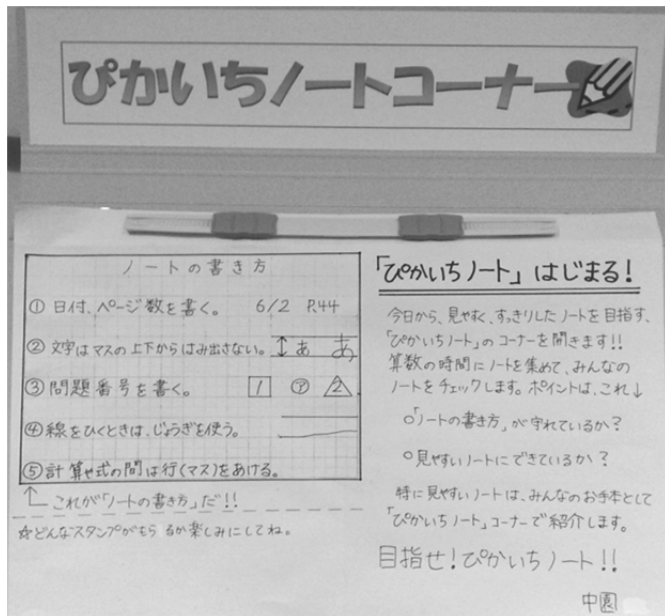 ぴかいちノートコーナー
ノートの書き方
① 日付、ページ数を書く。 6/2 P.44
② 文字はマスの上下からはみ出さない。 あ あ
③ 問題番号を書く。 1 ㋐ 2
④ 線をひくときは、じょうぎを使う。
⑤ 計算や式の間は行(マス)をあける。
これが「ノートの書き方」だ!!
☆どんなスタンプがもらるか楽しみにしてね。
「ぴかいちノート」はじまる!
今日から、見やすく、すっきりしたノートを目指す、
「ぴかいちノート」のコーナーを開きます!!
算数の時間にノートを集めて、みんなの
ノートをチェックします。ポイントは、これ↓
○「ノートの書き方」が守れているか?
○見やすいノートにできているか?
特に見やすいノートは、みんなのお手本として
「ぴかいちノート」コーナーで紹介します。
目指せ!ぴかいちノート!!
中園